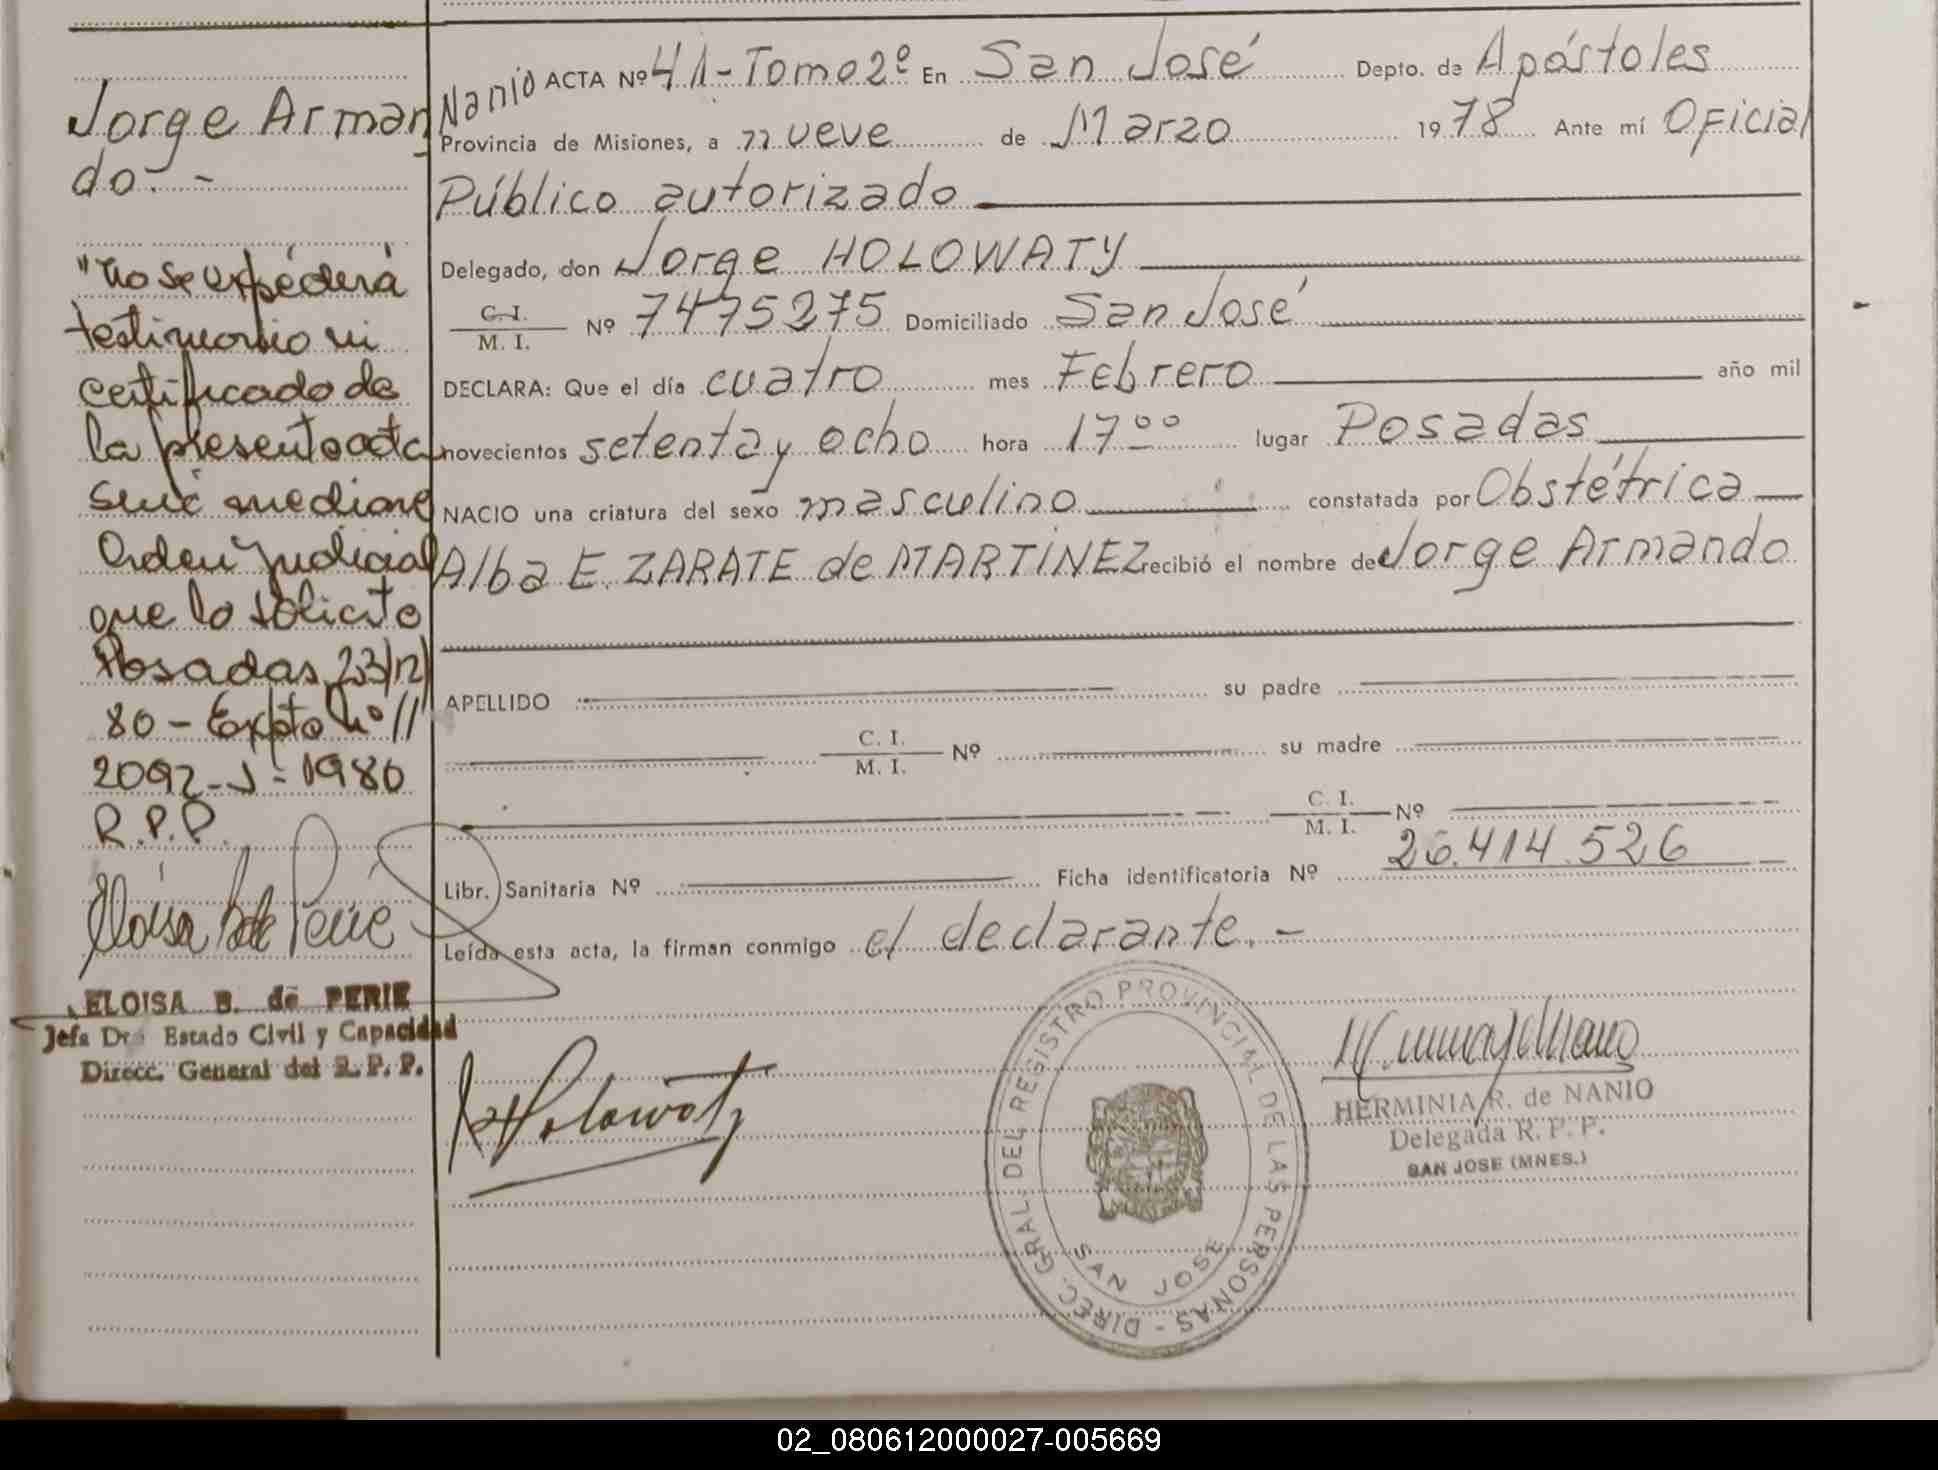 Jorge Arman
do.-
"No se expéderá
testimonio ni
certificado de
la presente acta
sino mediante
Orden judicial
que lo solicite
Posadas 23/12/
80 - Expte Nº 11
2092-J-1980
R.P.P.
Eloisa B. de Perié
ELOISA B. de PERIE
Jefa Dto Estado Civil y Capacidad
Direcc. General del R. P. P.
Nanio ACTA Nº 41-Tomo 2º En San José Depto. de Apóstoles
Provincia de Misiones, a nueve de Marzo 1978 Ante mí Oficial
Público autorizado
Delegado, don Jorge HOLOWATY
C. I.
M. I. Nº 7475275 Domiciliado San José
DECLARA: Que el día cuatro mes Febrero año mil
novecientos setenta y ocho hora 17ºº lugar Posadas
NACIO una criatura del sexo masculino constatada por Obstétrica
Alba E. ZARATE de MARTINEZ recibió el nombre de Jorge Armando
APELLIDO su padre
C. I.
M. I. Nº su madre
C. I.
M. I. Nº
Libr. Sanitaria Nº Ficha identificatoria Nº 26.414.526
Leída esta acta, la firman conmigo el declarante.-
Holowaty
DIREC. GRAL. DEL REGISTRO PROVINCIAL DE LAS PERSONAS -
SAN JOSE
HERMINIA R. de NANIO
Delegada R. P. P.
SAN JOSE (MNES.)
02_080612000027-005669